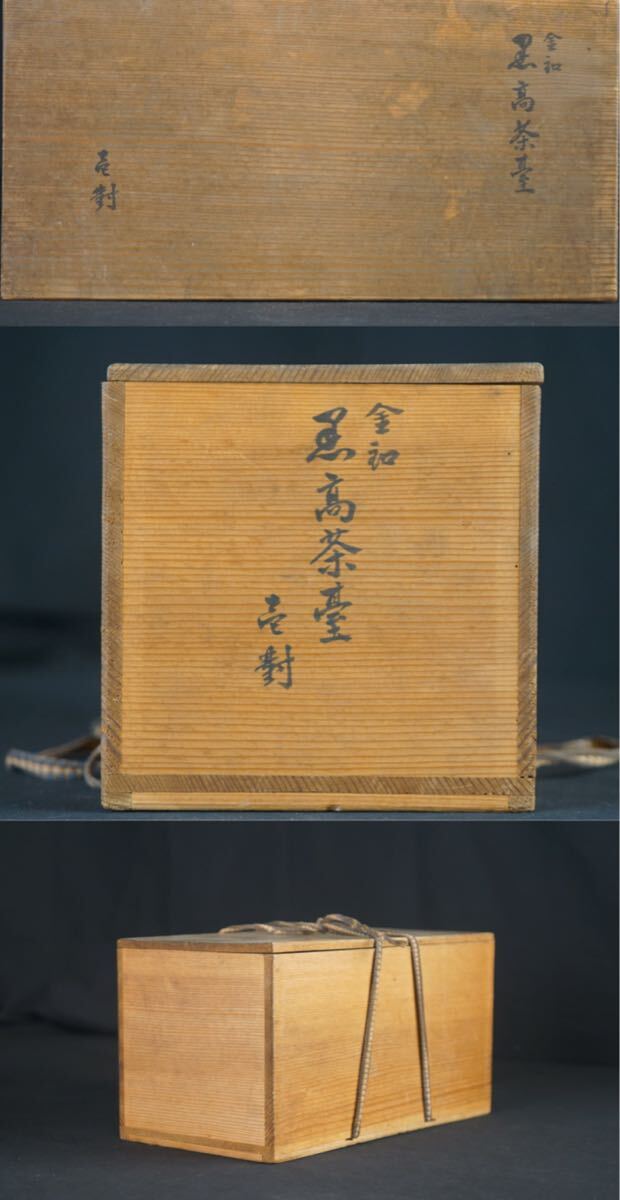 金釦
黒高茶臺
壱對
金釦
黒高茶臺
壱對